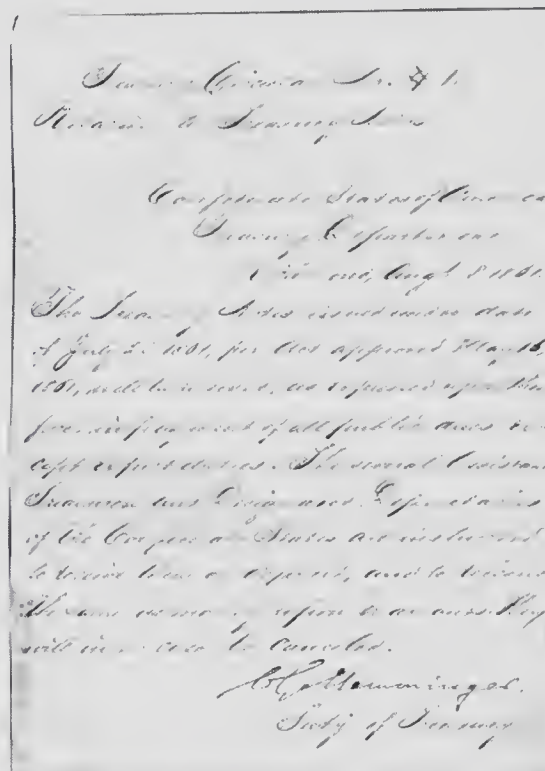 Treasury Circular No. 1.
Relative to Treasury Notes
Confederate States of America
Treasury Department
Richmond, Augt 8 1861.
The Treasury Notes issued under date
of July 25 1861, per Act approved May 16,
1861, will be received, as expressed upon their
face, in payment of all public dues ex-
cept export duties. The several Assistant
Treasurers and Depositaries
of the Confederate States are instructed
to receive them on deposit, and to
the same as money upon They
will in no case be canceled.
C. G. Memminger.
Secty of Treasury